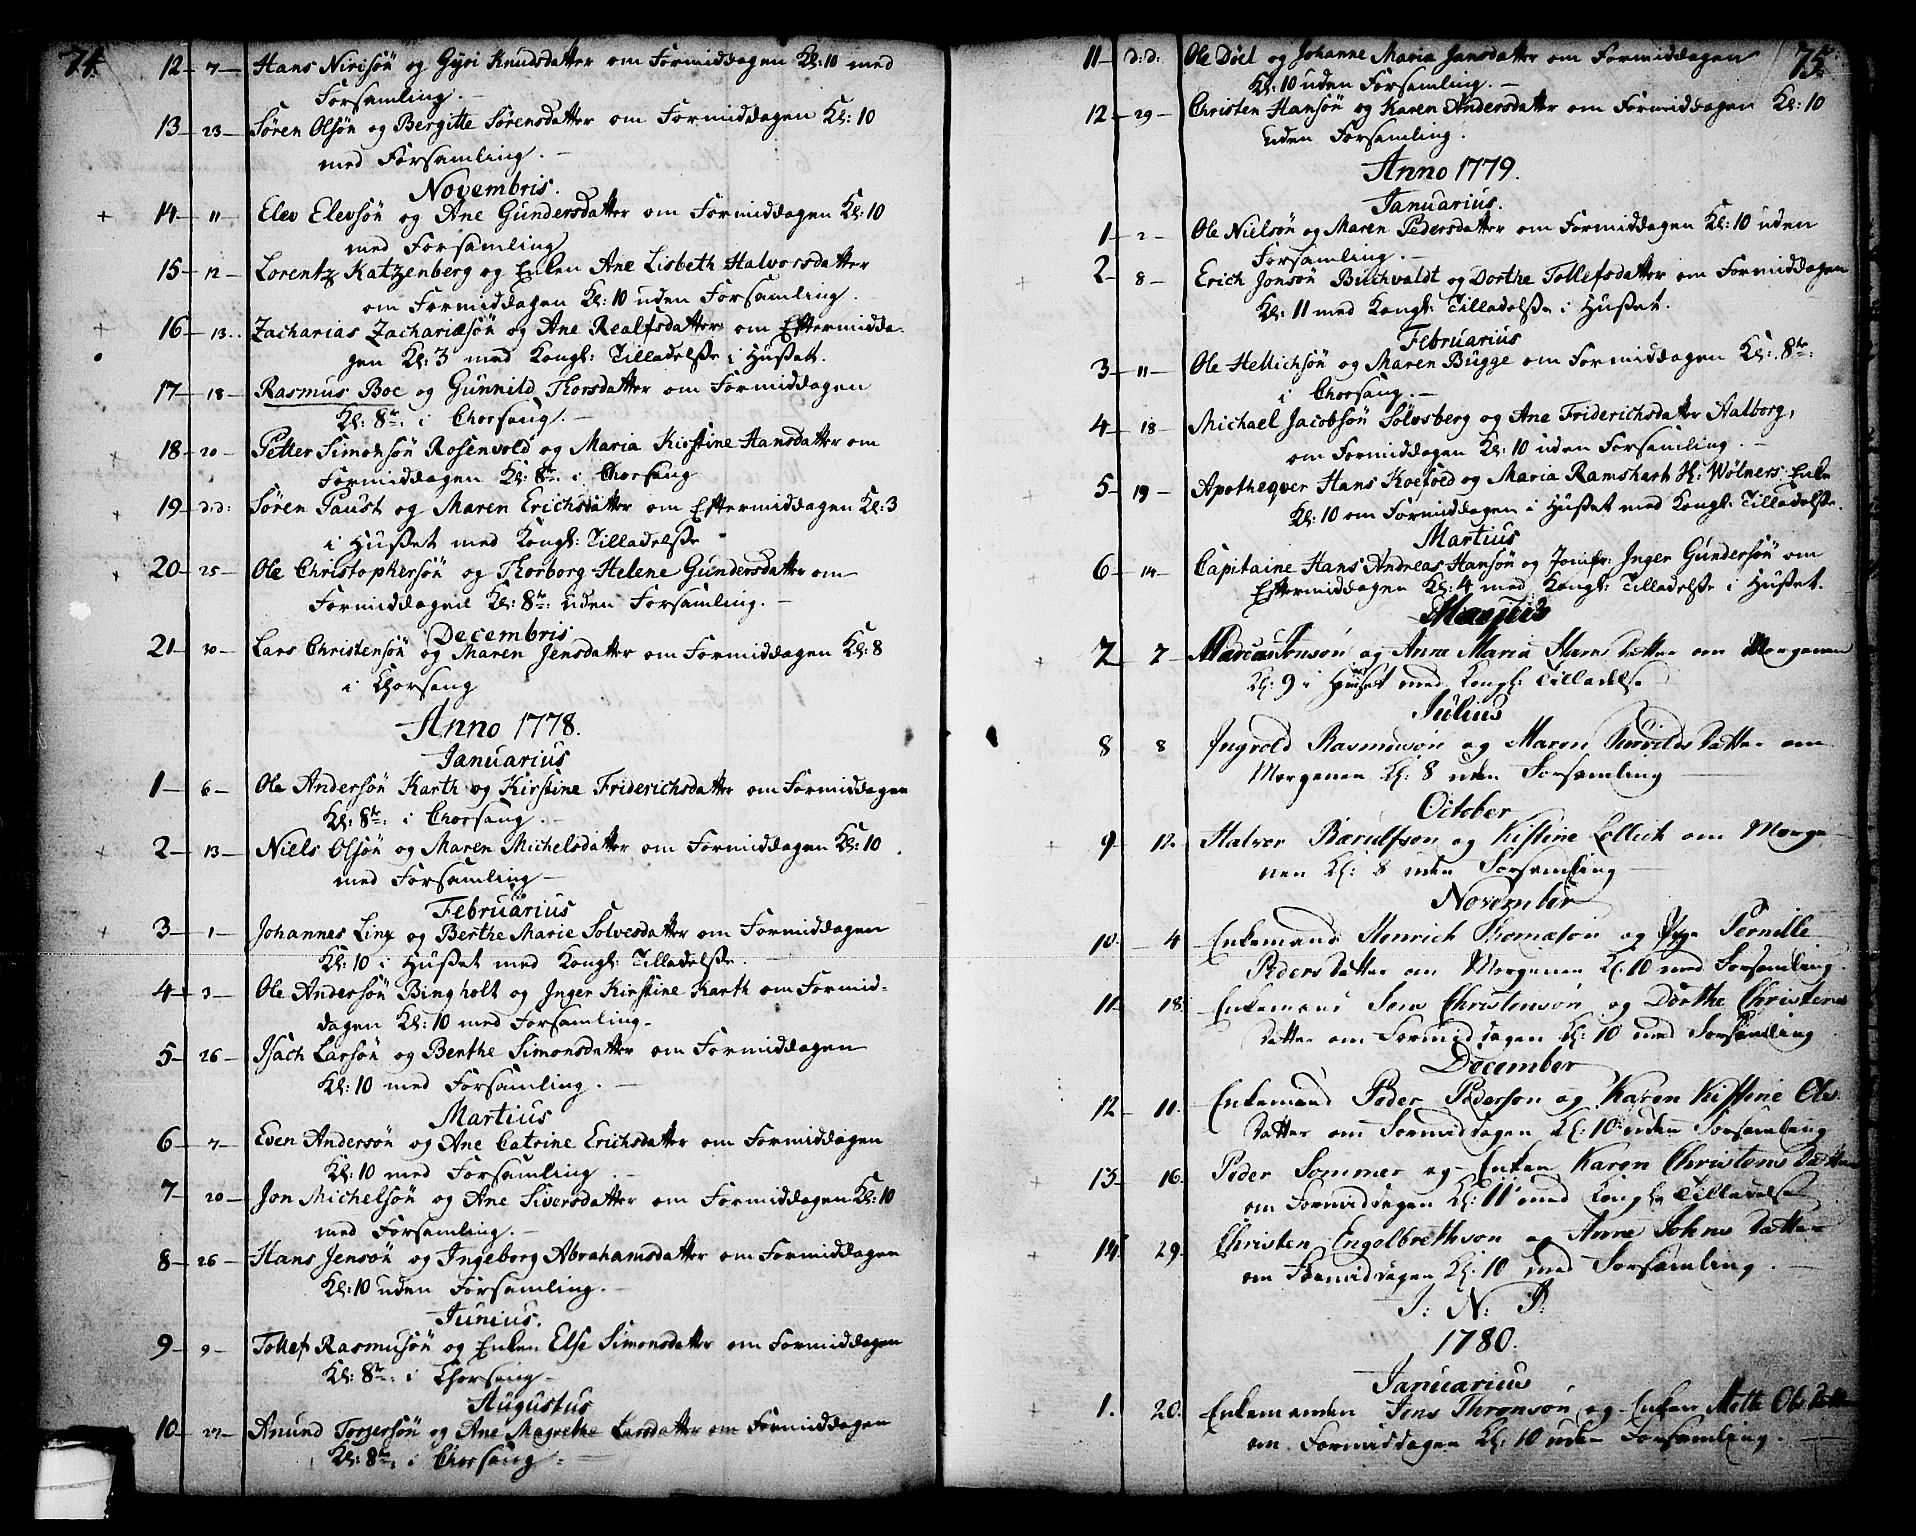 74.
12 7 Hans Nirisön og Gyri Knudsdatter om Formiddagen Kl: 10 med
Forsamling.
13 23 Sören Olsön og Bergitte Sörensdatter om Formiddagen Kl: 10
med Forsamling.
Novembris.
14 11 Elev Elevsön og Ane Gundersdatter om Formiddagen Kl: 10
med Forsamling
15 12 Lorentz Katzenberg og Enken Ane Lisbeth Halvorsdatter
om Formiddagen Kl: 10 uden Forsamling.
16 13 Zacharias Zachariæsön og Ane Realfsdatter om Eftermidda-
gen Kl: 3 med Kongl: Tilladelsse i Husset.
17 18 Rasmus Boe og Gunnild Thorsdatter om Formiddagen
Kl: 8te: i Chorsang.
18 20 Petter Simonsön Rosenvold og Maria Kirstine Hansdatter om
Formiddagen Kl: 8te i Chorsang
19 d:d: Sören Paust og Maren Erichsdatter om Eftermiddagen Kl: 3
i Husset med Kongl: Tilladelsse
20 25 Ole Christophersön og Thorborg Helene Gundersdatter om
Formiddagen Kl: 8te: uden Forsamling.
Decembris
21 30 Lars Christensön og Maren Jensdatter om Formiddagen Kl: 8
i Chorsang
Anno 1778.
Januarius
1 6 Ole Andersön Karth og Kirstine Friderichsdatter om Formiddagen
Kl: 8te: i Chorsang.
2 13 Niels Olsön og Maren Michelsdatter om Formiddagen Kl: 10
med Forsamling
Februarius
3 1 Johannes Linx og Berthe Marie Solvesdatter om Formiddagen
Kl: 10 i Husset med Kongl: Tilladelsse.
4 3 Ole Andersön Bingholt og Inger Kirstine Karth om Formid-
dagen Kl: 10 med Forsamling.
5 26 Isach Larsön og Benthe Simonsdatter om Formiddagen
Kl: 10 med Forsamling.
Martius
6 7 Even Andersön og Ane Catrine Erichsdatter om Formiddagen
Kl: 10 med Forsamling.
7 20 Jon Michelsön og Ane Siversdatter om Formiddagen Kl: 10
med Forsamling.
8 26 Hans Jensön og Ingeborg Abrahamsdatter om Formiddagen
Kl: 10 uden Forsamling.
Junius.
9 9 Tollef Rasmusön og Enken Else Simonsdatter om Formiddagen
Kl: 8te: i Chorsang
Augustus
10 27 Anund Torgersön og Ane Magrethe Larsdatter om Formiddagen
Kl: 8te: i Chorsang.
75.
11 d:d: Ole Döel og Johanne Maria Jansdatter om Formiddagen
Kl: 10 uden Forsamling.
12 29 Christen Hansön og Karen Andersdatter om Formiddagen Kl: 10
uden Forsamling.
Anno 1779.
Januarius.
1 2 Ole Nielsön og Maren Pedersdatter om Formiddagen Kl: 10 uden
Forsamling.
2 8 Erich Jonsön Buchvaldt og Dorthe Tollefsdatter om Formiddagen
Kl: 11 med Kongl: Tilladelsse i Husset.
Februarius
3 11 Ole Hellichsön og Maren Bugge om Formiddagen Kl: 8te:
i Chorsang.
4 18 Michael Jacobsön Sölvsberg og Ane Friderichsdatter Aalborg,
om Formiddagen Kl: 10 uden Forsamling.
5 19 Apothequer Hans Koefoed og Maria Ramshart Hr: Wölners Enke
Kl: 10 om Formiddagen i Husset med Kongl: Tilladelsse.
Martius
6 14 Capitaine Hans Andreas Hansön og Jomfr: Inger Gundersön om
Eftermiddagen Kl: 4 med Kongl: Tilladelsse i Husset.
Majus
7 7 Jonsön og Anne Maria Hans Datter om Morgenen
Kl: 9 i Huuset med Kongl: Tilladelse
Julius
8 8 Ingvold Rasmusön og Maren Datter om
Morgenen Kl: 8 uden Forsamling
October
9 12. Halvor Barulfson og Kistine Lellich om Morge-
nen Kl: 8 uden Forsamling
November
10. 4 Enkemand Henrich Thomæson og Pernille
Peders Datter om Morgenen Kl: 10 med Forsamling.
11 18 Enkemand Jens Christensön og Dorthe Christens
Datter om Formiddagen Kl: 10 med Forsamling
December
12 11. Enkemand Peder Pederson og Karen Kistine Ols
Datter om Formiddagen Kl: 10 uden Forsamling
13 16. Peder Sommer og Enken Karen Christens Datter
om Formiddagen Kl: 11 med Kongl: Tilladelse
14 29. Christen Engelbrethson og Anne Johns Datter
om Formiddagen Kl: 10 med Forsamling.
I: N: J:
1780.
Januarius
1. 20. Enkemanden Jens Thronsön og Enken Mette Ols Datter
om Formiddagen Kl: 10 uden Forsamling.